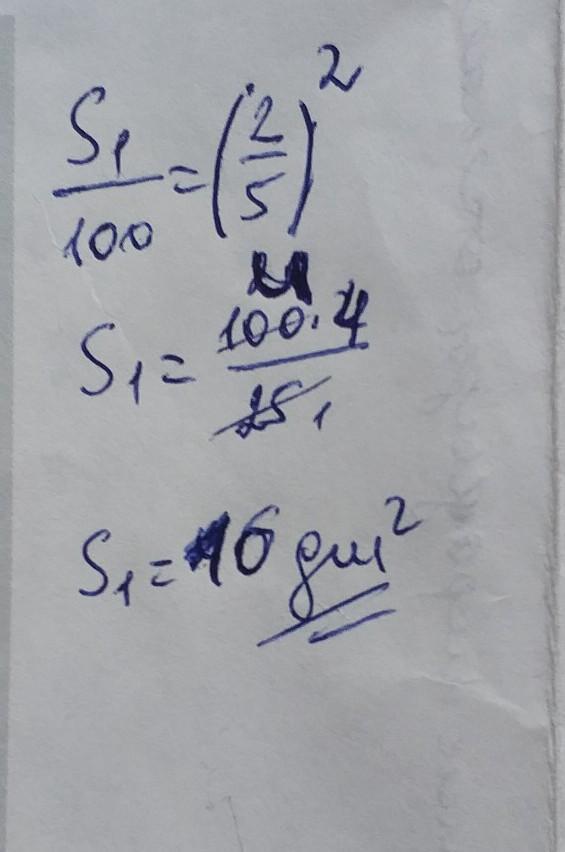 S₁/100 = (2/5)²
4
S₁ = 100·4/25 1
S₁ = 16 дм²